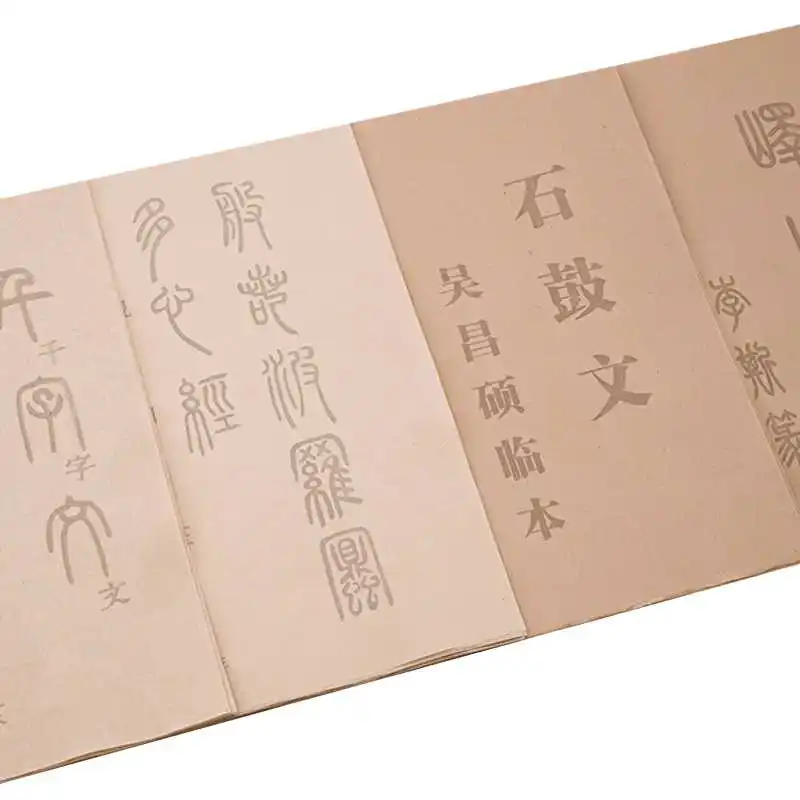 嶧山
李斯篆
石鼓文
吴昌硕临本
般若波羅蜜
多心經
千字文
千字文